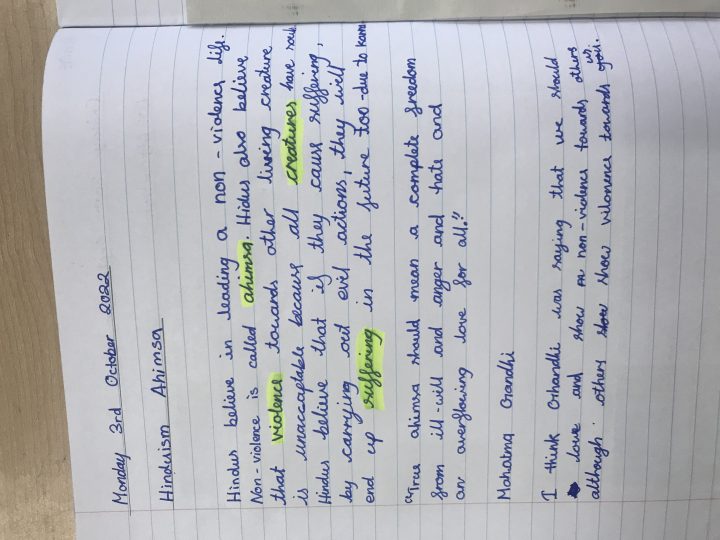 Monday 3rd October 2022
Hinduism Ahimsa
Hindus believe in leading a non-violence life.
Non-violence is called ahimsa. Hidus also believe
that violence towards other living creature
is unaccaptable because all creatures have souls
Hindus believe that if they cause suffering,
by carrying out evil actions, they will
end up suffering in the future too-due to karm
"True ahimsa should mean a complete freedom
from ill-will and anger and hate and
an overflowing love for all."
Mahatma Gandhi
I think Ghandhi was saying that we should
love and show non-violence towards others
although others show vilonence towards us.